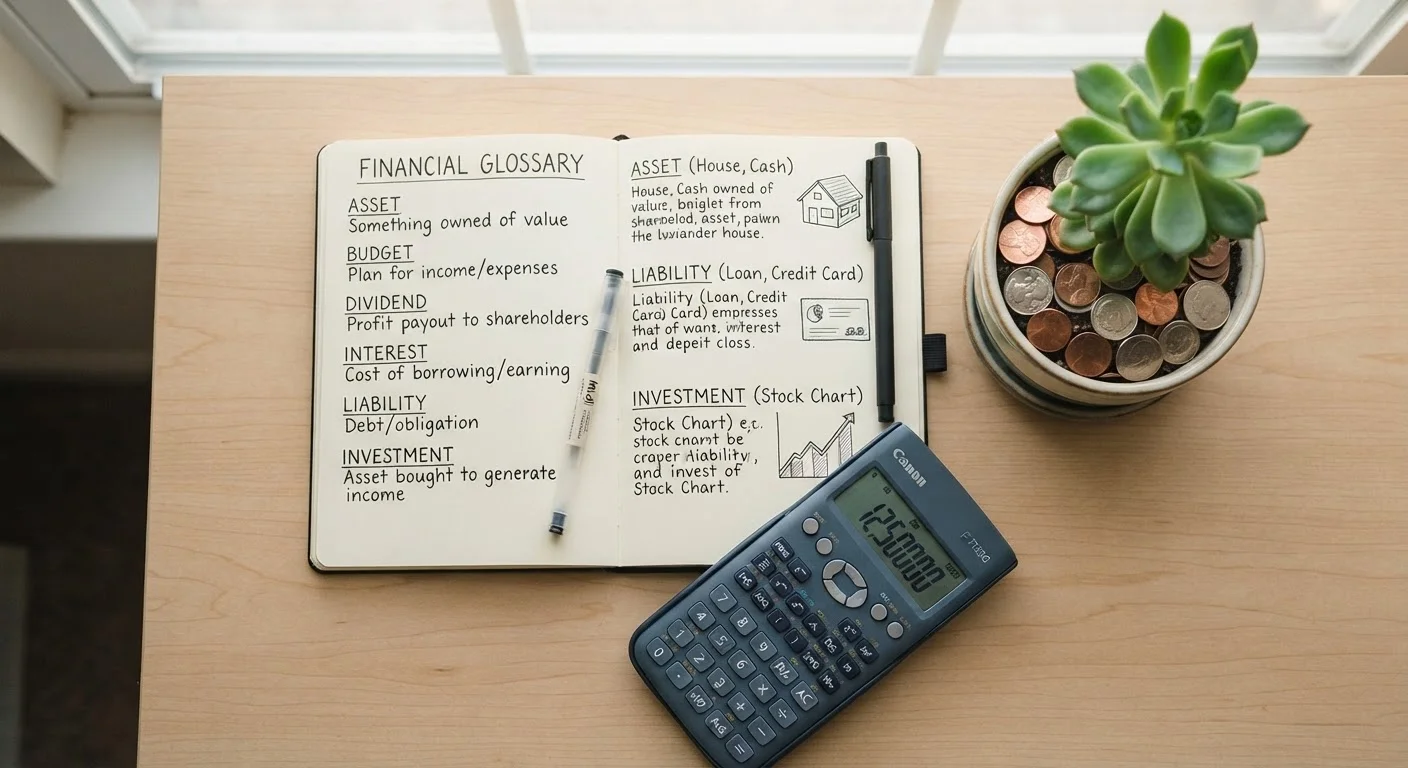 FINANCIAL GLOSSARY
ASSET
Something owned of value
BUDGET
Plan for income/expenses
DIVIDEND
Profit payout to shareholders
INTEREST
Cost of borrowing/earning
LIABILITY
Debt/obligation
INVESTMENT
Asset bought to generate
income
ASSET (House, Cash)
House, Cash owned of
from
asset, pawn
the house.
LIABILITY (Loan, Credit Card)
Liability (Loan, Credit
Card) Card) empresses
that of want, interest
and depeit closs.
INVESTMENT (Stock Chart)
Stock Chart) e,c.
stock be
craper
and invest of
Stock Chart.
Canon
1250000
7
4 8
1 5 9
0 2 6
. 3 × AC
+ ÷
−
=